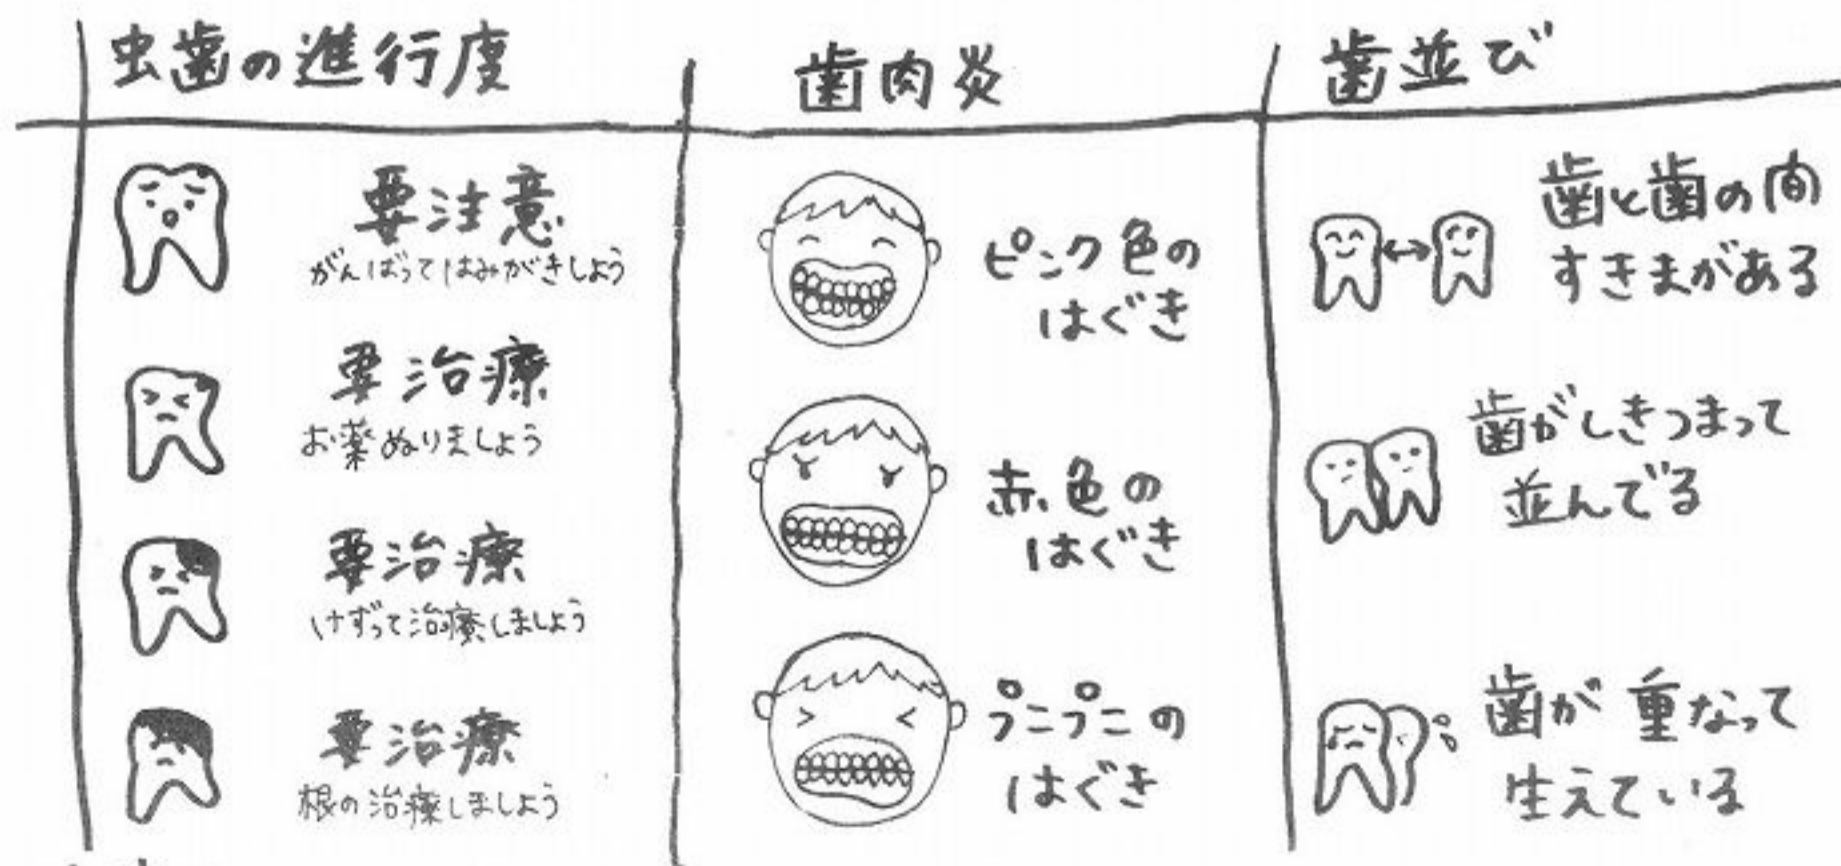 虫歯の進行度
要注意
がんばってはみがきしよう
要治療
お薬ぬりましょう
要治療
けずって治療しましよう
要治療
根の治療しましよう
歯肉炎
ピンク色の
はぐき
赤色の
はぐき
プニプニの
はぐき
歯並び
歯と歯の間
すきまがある
歯がしきつまって
並んでる
歯が重なって
生えている